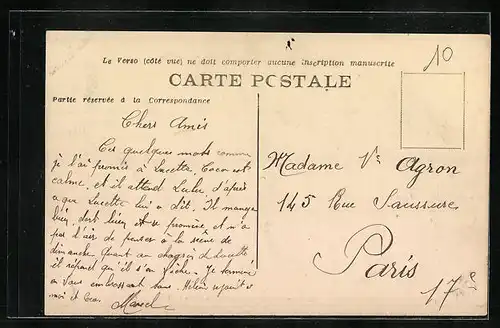 10
Le Verso (côté vue) ne doit comporter aucune inscription manuscrite
CARTE POSTALE
Partie réservée à la Correspondance
Chers Amis
Ces quelques mots comme
je l'ai promis à Lucette. Coco est
calme, et il attend Lulu d'après
ce que Lucette lui a dit. Il mange
bien, dort bien et se promène et n'a
pas l'air de penser à la scène de
dimanche. Quant au chagrin de Lucette
il répond qu'il s'en fiche. Je termine
en vous embrassant tous. Hélène
moi et Coco. Marcel
Madame Vve Agron
145 Rue Saussure
Paris
17e